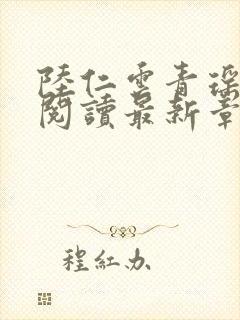 陸仁雲青瑶
閱讀最新章
程紅办